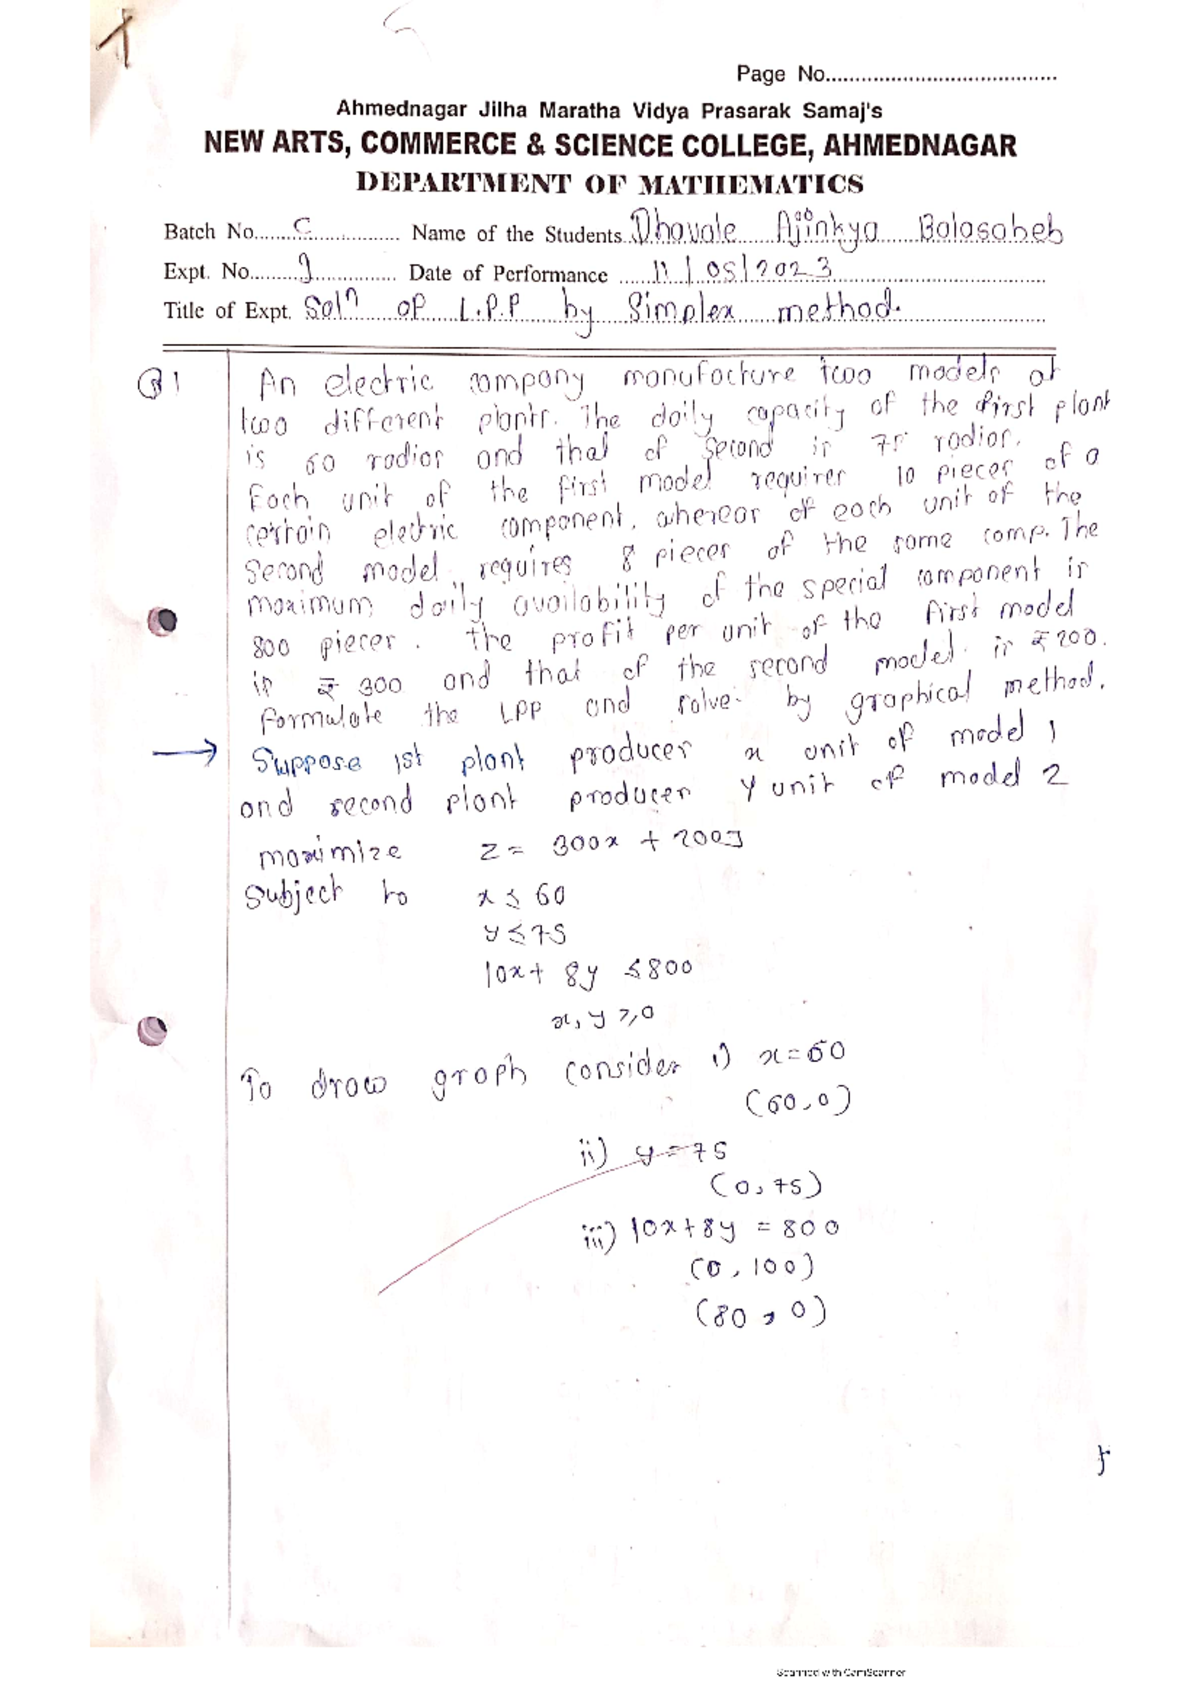 Page No.......................................
Ahmednagar Jilha Maratha Vidya Prasarak Samaj's
NEW ARTS, COMMERCE & SCIENCE COLLEGE, AHMEDNAGAR
DEPARTMENT OF MATHEMATICS
Batch No. C Name of the Students Dhavale Ajinkya Balasaheb
Expt. No. 9 Date of Performance 11/05/2023
Title of Expt. Solⁿ of L.P.P by Simplex method.
Q1 An electric company manufacture two models at
two different plants. The daily capacity of the first plant
is 60 radios and that of second is 75 radios.
Each unit of the first model requires 10 pieces of a
certain electric component, whereas of each unit of the
second model requires 8 pieces of the same comp. The
maximum daily availability of the special component is
800 pieces. The profit per unit of the first model
is ₹ 300 and that of the second model is ₹ 200.
formulate the LPP and solve by graphical method.
→ Suppose 1st plant produces x unit of model 1
and second plant produces y unit of model 2
maximize z = 300x + 200y
Subject to x ≤ 60
y ≤ 75
10x + 8y ≤ 800
x, y ≥ 0
To draw graph consider i) x = 60
(60, 0)
ii) y = 75
(0, 75)
iii) 10x + 8y = 800
(0, 100)
(80, 0)
Scanned with CamScanner